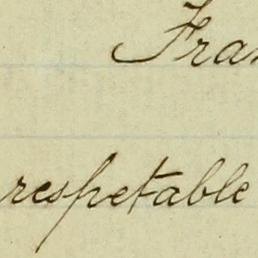 Fra
respetable